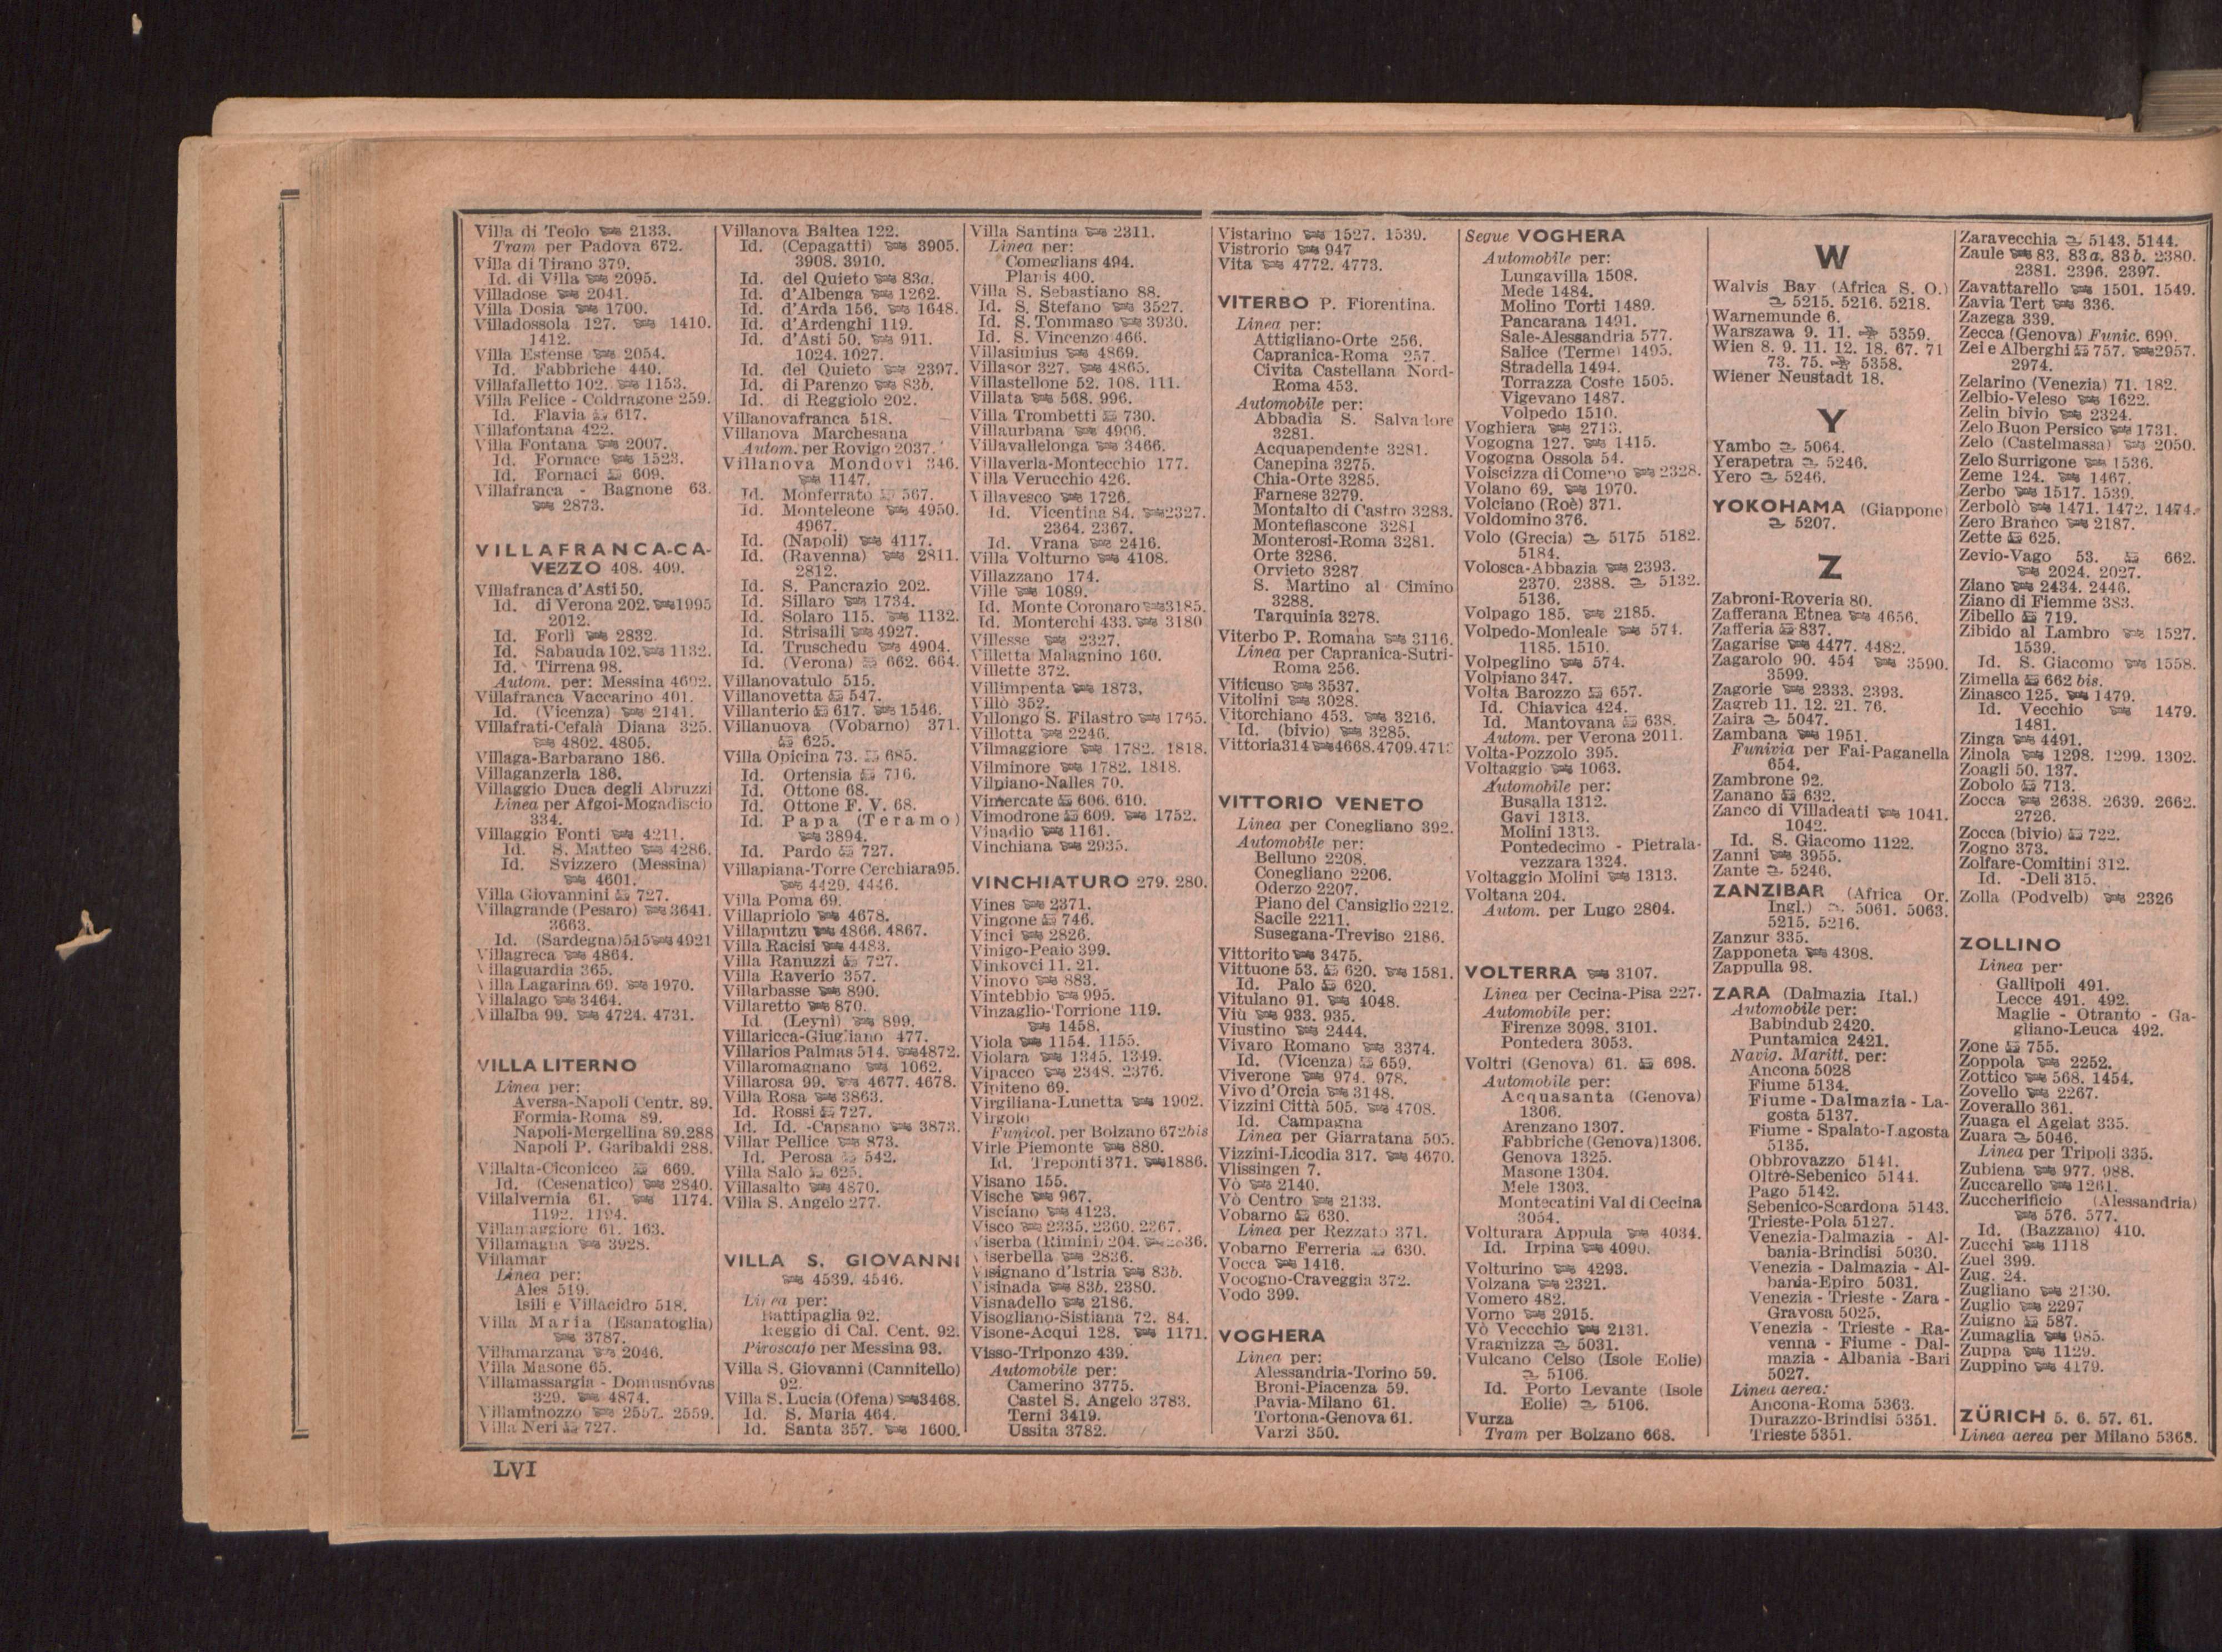 Villa di Teolo 2133.
Tram per Padova 672.
Villa di Tirano 379.
Id. di Villa 2095.
Villadose 2041.
Villa Dosia 1700.
Villadossola 127. 1410.
1412.
Villa Estense 2054.
Id. Fabbriche 440.
Villafalletto 102. 1153.
Villa Felice - Coldragone 259.
Id. Flavia 617.
Villafontana 422.
Villa Fontana 2007.
Id. Fornace 1523.
Id. Fornaci 609.
Villafranca - Bagnone 63.
2873.
VILLAFRANCA-CA-
VEZZO 408. 409.
Villafranca d'Asti 50.
Id. di Verona 202. 1995
2012.
Id. Forlì 2832.
Id. Sabauda 102. 1132.
Id. Tirrena 98.
Autom. per: Messina 4602.
Villafranca Vaccarino 401.
Id. (Vicenza) 2141.
Villafrati-Cefalà Diana 325.
4802. 4805.
Villaga-Barbarano 186.
Villaganzerla 186.
Villaggio Duca degli Abruzzi
Linea per Afgoi-Mogadiscio
334.
Villaggio Fonti 4211.
Id. S. Matteo 4286.
Id. Svizzero (Messina)
4601.
Villa Giovannini 727.
Villagrande (Pesaro) 3641.
3663.
Id. (Sardegna) 515 4921
Villagreca 4864.
Villaguardia 365.
Villa Lagarina 69. 1970.
Villalago 3464.
Villalba 99. 4724. 4731.
VILLA LITERNO
Linea per:
Aversa-Napoli Centr. 89.
Formia-Roma 89.
Napoli-Mergellina 89.288
Napoli P. Garibaldi 288.
Villalta-Ciconicco 669.
Id. (Cesenatico) 2840.
Villalvernia 61. 1174.
1192. 1194.
Villamaggiore 61. 163.
Villamagna 3928.
Villamar
Linea per:
Ales 519.
Isili e Villacidro 518.
Villa Maria (Esanatoglia)
3787.
Villamarzana 2046.
Villa Masone 65.
Villamassargia - Domusnóvas
329. 4874.
Villaminozzo 2557. 2559.
Villa Neri 727.
Villanova Baltea 122.
Id. (Cepagatti) 3905.
3908. 3910.
Id. del Quieto 83a.
Id. d'Albenga 1262.
Id. d'Arda 156. 1648.
Id. d'Ardenghi 119.
Id. d'Asti 50. 911.
1024. 1027.
Id. del Quieto 2397.
Id. di Parenzo 83b.
Id. di Reggiolo 202.
Villanovafranca 518.
Villanova Marchesana
Autom. per Rovigo 2037.
Villanova Mondovì 346.
1147.
Id. Monferrato 567.
Id. Monteleone 4950.
4967.
Id. (Napoli) 4117.
Id. (Ravenna) 2811.
2812.
Id. S. Pancrazio 202.
Id. Sillaro 1734.
Id. Solaro 115. 1132.
Id. Strisaili 4927.
Id. Truschedu 4904.
Id. (Verona) 662. 664.
Villanovatulo 515.
Villanovetta 547.
Villanterio 617. 1546.
Villanuova (Vobarno) 371.
625.
Villa Opicina 73. 685.
Id. Ortensia 716.
Id. Ottone 68.
Id. Ottone F. V. 68.
Id. Papa (Teramo)
3894.
Id. Pardo 727.
Villapiana-Torre Cerchiara 95.
4429. 4446.
Villa Poma 69.
Villapriolo 4678.
Villaputzu 4866. 4867.
Villa Racisi 4483.
Villa Ranuzzi 727.
Villa Raverio 357.
Villarbasse 890.
Villaretto 870.
Id. (Leynì) 899.
Villaricca-Giugliano 477.
Villarios Palmas 514. 4872.
Villaromagnano 1062.
Villarosa 99. 4677. 4678.
Villa Rosa 3863.
Id. Rossi 727.
Id. Id. -Capsano 3873.
Villar Pellice 873.
Id. Perosa 542.
Villa Salò 625.
Villasalto 4870.
Villa S. Angelo 277.
VILLA S. GIOVANNI
4539. 4546.
Linea per:
Battipaglia 92.
Reggio di Cal. Cent. 92.
Piroscafo per Messina 93.
Villa S. Giovanni (Cannitello)
92.
Villa S. Lucia (Ofena) 3468.
Id. S. Maria 464.
Id. Santa 357. 1600.
Villa Santina 2311.
Linea per:
Comeglians 494.
Planis 400.
Villa S. Sebastiano 88.
Id. S. Stefano 3527.
Id. S. Tommaso 3930.
Id. S. Vincenzo 466.
Villasimius 4869.
Villasor 327. 4865.
Villastellone 52. 108. 111.
Villata 568. 996.
Villa Trombetti 730.
Villaurbana 4906.
Villavallelonga 3466.
Villaverla-Montecchio 177.
Villa Verucchio 426.
Villavesco 1726.
Id. Vicentina 84. 2327.
2364. 2367.
Id. Vrana 2416.
Villa Volturno 4108.
Villazzano 174.
Ville 1089.
Id. Monte Coronaro 3185.
Id. Monterchi 433. 3180
Villesse 2327.
Villetta Malagnino 160.
Villette 372.
Villimpenta 1873.
Villò 352.
Villongo S. Filastro 1765.
Villotta 2246.
Vilmaggiore 1782. 1818.
Vilminore 1782. 1818.
Vilpiano-Nalles 70.
Vimercate 606. 610.
Vimodrone 609. 1752.
Vinadio 1161.
Vinchiana 2935.
VINCHIATURO 279. 280.
Vines 2371.
Vingone 746.
Vinci 2826.
Vinigo-Peaio 399.
Vinkovci 11. 21.
Vinovo 883.
Vintebbio 995.
Vinzaglio-Torrione 119.
1458.
Viola 1154. 1155.
Violara 1345. 1349.
Vipacco 2348. 2376.
Vipiteno 69.
Virgiliana-Lunetta 1902.
Virgolo
Funicol. per Bolzano 672bis
Virle Piemonte 880.
Id. Treponti 371. 1886.
Visano 155.
Vische 967.
Visciano 4123.
Visco 2335. 2360. 2367.
Viserba (Rimini) 204.
Viserbella 2836.
Visignano d'Istria 83b.
Visinada 83b. 2380.
Visnadello 2186.
Visogliano-Sistiana 72. 84.
Visone-Acqui 128. 1171.
Visso-Triponzo 439.
Automobile per:
Camerino 3775.
Castel S. Angelo 3783.
Terni 3419.
Ussita 3782.
Vistarino 1527. 1539.
Vistrorio 947
Vita 4772. 4773.
VITERBO P. Fiorentina.
Linea per:
Attigliano-Orte 256.
Capranica-Roma 257.
Civita Castellana Nord-
Roma 453.
Automobile per:
Abbadia S. Salvatore
3281.
Acquapendente 3281.
Canepina 3275.
Chia-Orte 3285.
Farnese 3279.
Montalto di Castro 3283.
Montefiascone 3281
Monterosi-Roma 3281.
Orte 3286.
Orvieto 3287
S. Martino al Cimino
3288.
Tarquinia 3278.
Viterbo P. Romana 3116.
Linea per Capranica-Sutri-
Roma 256.
Viticuso 3537.
Vitolini 3028.
Vitorchiano 453. 3216.
Id. (bivio) 3285.
Vittoria 314 4668.4709.471
VITTORIO VENETO
Linea per Conegliano 392.
Automobile per:
Belluno 2208.
Conegliano 2206.
Oderzo 2207.
Piano del Cansiglio 2212.
Sacile 2211.
Susegana-Treviso 2186.
Vittorito 3475.
Vittuone 53. 620. 1581.
Id. Palo 620.
Vitulano 91. 4048.
Viù 933. 935.
Viustino 2444.
Vivaro Romano 3374.
Id. (Vicenza) 659.
Viverone 974. 978.
Vivo d'Orcia 3148.
Vizzini Città 505. 4708.
Id. Campagna
Linea per Giarratana 505.
Vizzini-Licodia 317. 4670.
Vlissingen 7.
Vò 2140.
Vò Centro 2133.
Vobarno 630.
Linea per Rezzato 371.
Vobarno Ferreria 630.
Vocca 1416.
Vocogno-Craveggia 372.
Vodo 399.
VOGHERA
Linea per:
Alessandria-Torino 59.
Broni-Piacenza 59.
Pavia-Milano 61.
Tortona-Genova 61.
Varzi 350.
Segue VOGHERA
Automobile per:
Lungavilla 1508.
Mede 1484.
Molino Torti 1489.
Pancarana 1491.
Sale-Alessandria 577.
Salice (Terme) 1495.
Stradella 1494.
Torrazza Coste 1505.
Vigevano 1487.
Volpedo 1510.
Voghiera 2713.
Vogogna 127. 1415.
Vogogna Ossola 54.
Voiscizza di Comeno 2328.
Volano 69. 1970.
Volciano (Roè) 371.
Voldomino 376.
Volo (Grecia) 5175 5182.
5184.
Volosca-Abbazia 2393.
2370. 2388. 5132.
5136.
Volpago 185. 2185.
Volpedo-Monleale 574.
1185. 1510.
Volpeglino 574.
Volpiano 347.
Volta Barozzo 657.
Id. Chiavica 424.
Id. Mantovana 638.
Autom. per Verona 2011.
Volta-Pozzolo 395.
Voltaggio 1063.
Automobile per:
Busalla 1312.
Gavi 1313.
Molini 1313.
Pontedecimo - Pietrala-
vezzara 1324.
Voltaggio Molini 1313.
Voltana 204.
Autom. per Lugo 2804.
VOLTERRA 3107.
Linea per Cecina-Pisa 227.
Automobile per:
Firenze 3098. 3101.
Pontedera 3053.
Voltri (Genova) 61. 698.
Automobile per:
Acquasanta (Genova)
1306.
Arenzano 1307.
Fabbriche (Genova) 1306.
Genova 1325.
Masone 1304.
Mele 1303.
Montecatini Val di Cecina
3054.
Volturara Appula 4034.
Id. Irpina 4090.
Volturino 4293.
Volzana 2321.
Vomero 482.
Vorno 2915.
Vò Veccchio 2131.
Vragnizza 5031.
Vulcano Celso (Isole Eolie)
5106.
Id. Porto Levante (Isole
Eolie) 5106.
Vurza
Tram per Bolzano 668.
W
Walvis Bay (Africa S. O.)
5215. 5216. 5218.
Warnemunde 6.
Warszawa 9. 11. 5359.
Wien 8. 9. 11. 12. 18. 67. 71
73. 75. 5358.
Wiener Neustadt 18.
Y
Yambo 5064.
Yerapetra 5246.
Yero 5246.
YOKOHAMA (Giappone)
5207.
Z
Zabroni-Roveria 80.
Zafferana Etnea 4656.
Zafferia 837.
Zagarise 4477. 4482.
Zagarolo 90. 454 3590.
3599.
Zagorie 2333. 2393.
Zagreb 11. 12. 21. 76.
Zaira 5047.
Zambana 1951.
Funivia per Fai-Paganella
654.
Zambrone 92.
Zanano 632.
Zanco di Villadeati 1041.
1042.
Id. S. Giacomo 1122.
Zanni 3955.
Zante 5246.
ZANZIBAR (Africa Or.
Ingl.) 5061. 5063.
5215. 5216.
Zanzur 335.
Zapponeta 4308.
Zappulla 98.
ZARA (Dalmazia Ital.)
Automobile per:
Babindub 2420.
Puntamica 2421.
Navig. Maritt. per:
Ancona 5028
Fiume 5134.
Fiume - Dalmazia - La-
gosta 5137.
Fiume - Spalato-Lagosta
5135.
Obbrovazzo 5141.
Oltre-Sebenico 5144.
Pago 5142.
Sebenico-Scardona 5143.
Trieste-Pola 5127.
Venezia-Dalmazia - Al-
bania-Brindisi 5030.
Venezia - Dalmazia - Al-
bania-Epiro 5031.
Venezia - Trieste - Zara -
Gravosa 5025.
Venezia - Trieste - Ra-
venna - Fiume - Dal-
mazia - Albania -Bari
5027.
Linea aerea:
Ancona-Roma 5363.
Durazzo-Brindisi 5351.
Trieste 5351.
Zaravecchia 5143. 5144.
Zaule 83. 83a. 83b. 2380.
2381. 2396. 2397.
Zavattarello 1501. 1549.
Zavia Tert 336.
Zazega 339.
Zecca (Genova) Funic. 699.
Zei e Alberghi 757. 2957.
2974.
Zelarino (Venezia) 71. 182.
Zelbio-Veleso 1622.
Zelin bivio 2324.
Zelo Buon Persico 1731.
Zelo (Castelmassa) 2050.
Zelo Surrigone 1536.
Zeme 124. 1467.
Zerbo 1517. 1539.
Zerbolò 1471. 1472. 1474.
Zero Branco 2187.
Zette 625.
Zevio-Vago 53. 662.
2024. 2027.
Ziano 2434. 2446.
Ziano di Fiemme 383.
Zibello 719.
Zibido al Lambro 1527.
1539.
Id. S. Giacomo 1558.
Zimella 662 bis.
Zinasco 125. 1479.
Id. Vecchio 1479.
1481.
Zinga 4491.
Zinola 1298. 1299. 1302.
Zoagli 50. 137.
Zobolo 713.
Zocca 2638. 2639. 2662.
2726.
Zocca (bivio) 722.
Zogno 373.
Zolfare-Comitini 312.
Id. -Deli 315.
Zolla (Podvelb) 2326
ZOLLINO
Linea per
Gallipoli 491.
Lecce 491. 492.
Maglie - Otranto - Ga-
gliano-Leuca 492.
Zone 755.
Zoppola 2252.
Zottico 568. 1454.
Zovello 2267.
Zoverallo 361.
Zuaga el Agelat 335.
Zuara 5046.
Linea per Tripoli 335.
Zubiena 977. 988.
Zuccarello 1261.
Zuccherificio (Alessandria)
576. 577.
Id. (Bazzano) 410.
Zucchi 1118
Zuel 399.
Zug. 24.
Zugliano 2130.
Zuglio 2297
Zuigno 587.
Zumaglia 985.
Zuppa 1129.
Zuppino 4179.
ZÜRICH 5. 6. 57. 61.
Linea aerea per Milano 5368.
LVI